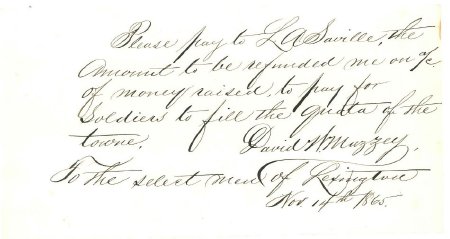 Please pay to L A Saville, the
Amount to be refunded me on a/c
of money raised, to pay for
Soldiers to fill the quota of the
towne.    David W Muzzey.
To the select men of Lexington
Nov. 14th 1865.